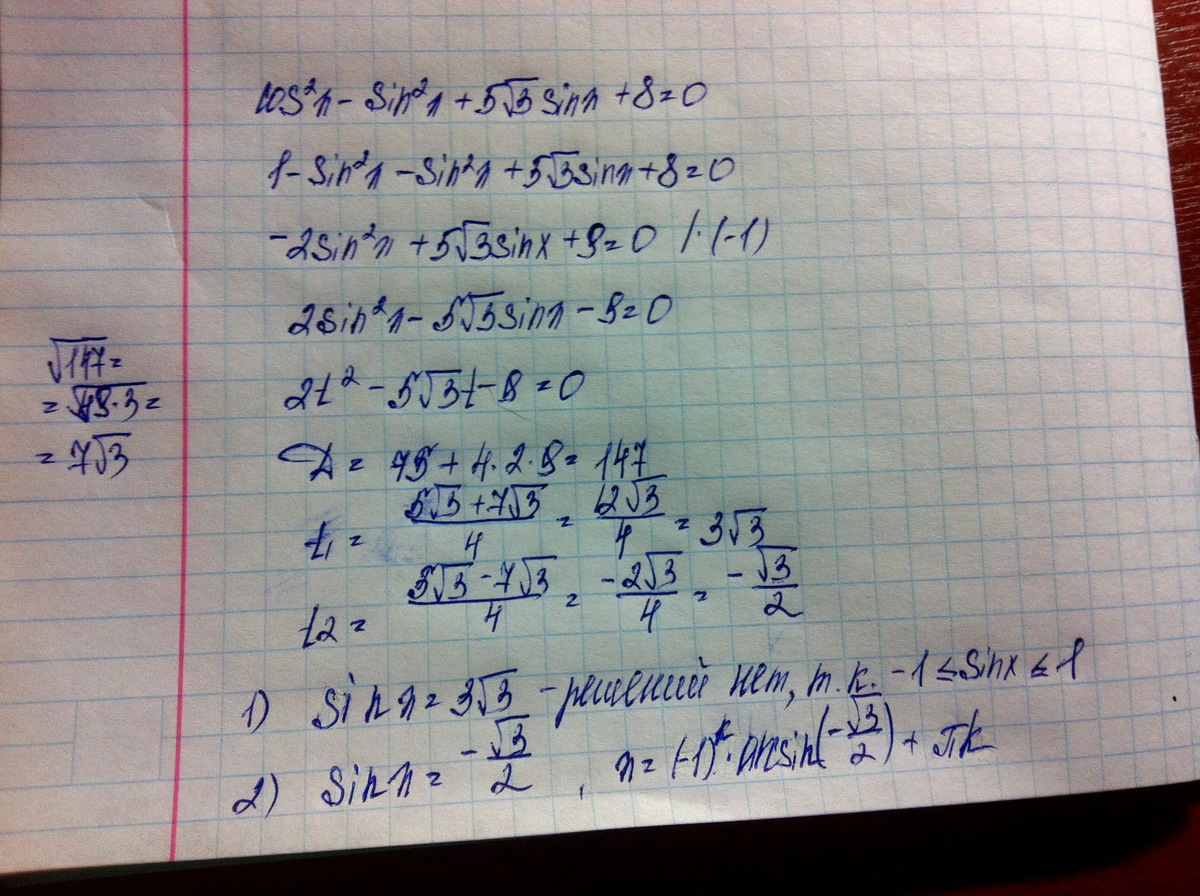 cos²x - sin²x + 5√3 sinx + 8 = 0
1 - sin²x - sin²x + 5√3 sinx + 8 = 0
-2sin²x + 5√3 sinx + 9 = 0 /·(-1)
2sin²x - 5√3 sinx - 9 = 0
2t² - 5√3 t - 9 = 0
D = 75 + 4·2·9 = 147
t₁ = (5√3 + 7√3)/4 = 12√3/4 = 3√3
t2 = (5√3 - 7√3)/4 = -2√3/4 = -√3/2
1) sin x = 3√3 - решений нет, т.к. -1 ≤ sinx ≤ 1
2) sin x = -√3/2, x = (-1)ᵏ · arcsin(-√3/2) + πk
√147 =
= √49·3 =
= 7√3